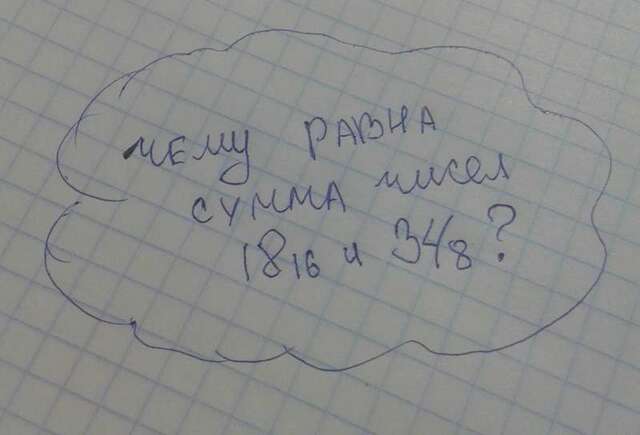 чему РАВНА
сумма чисел
18₁₆ и 34₈?